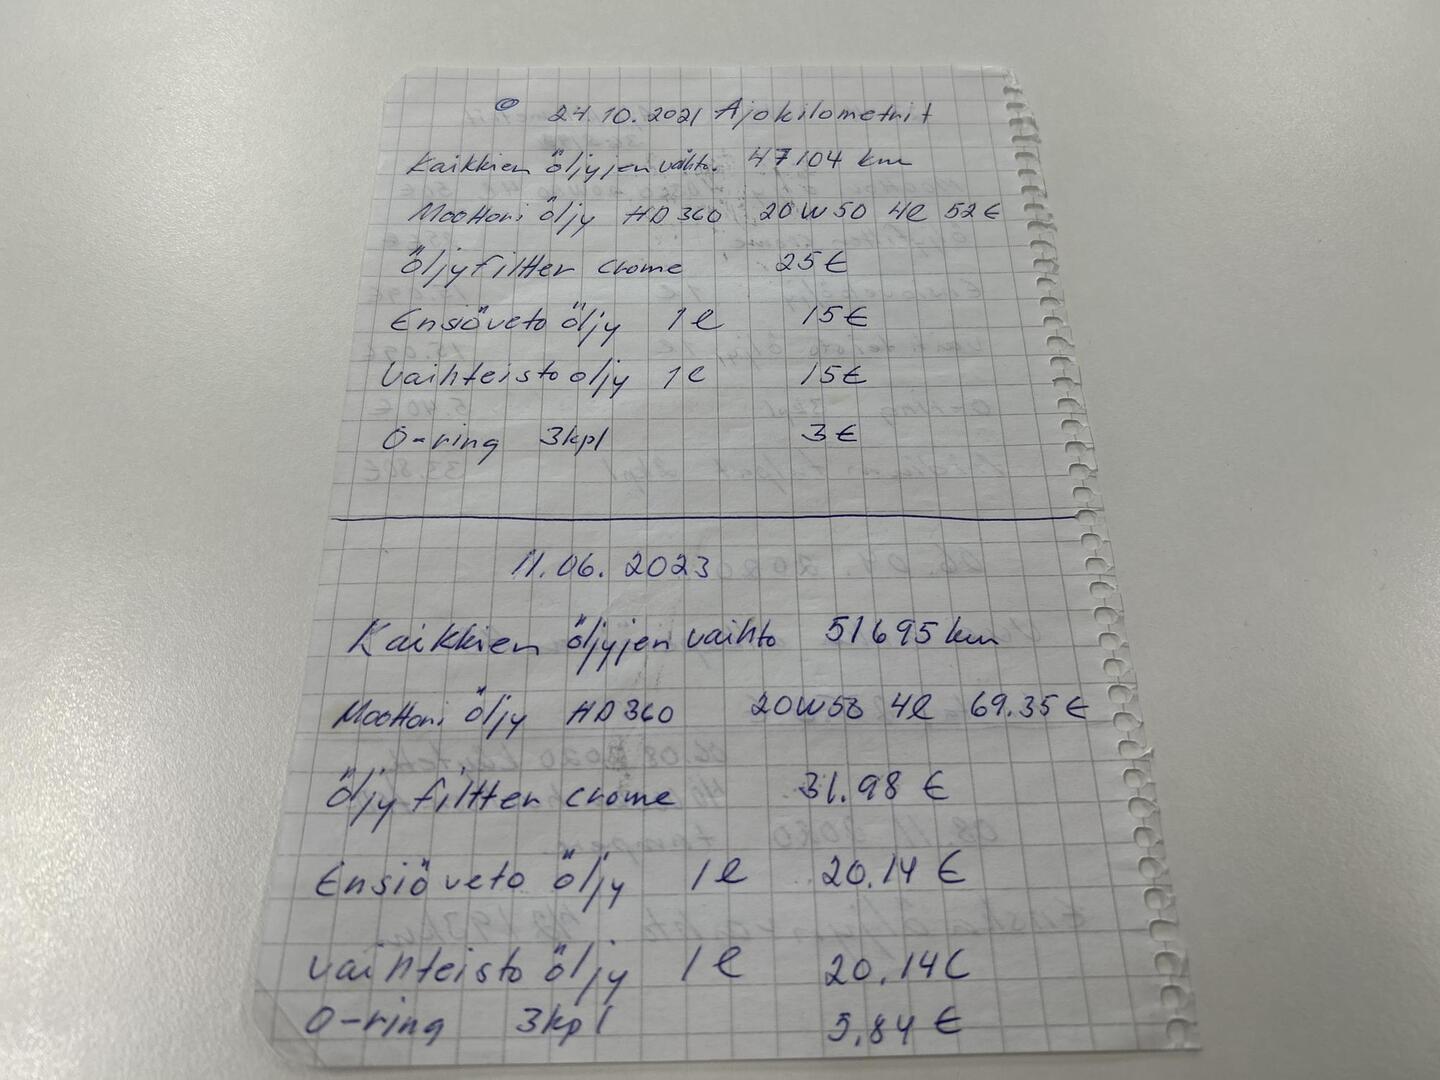 24.10.2021 Ajokilometrit
Kaikkien öljyjen vaihto. 47104 km
Moottori öljy HD360 20W50 4l 52€
Öljyfiltter crome 25€
Ensiöveto öljy 1l 15€
Vaihteisto öljy 1l 15€
O-ring 3kpl 3€
11.06.2023
Kaikkien öljyjen vaihto 51695km
Moottori öljy HD360 20W50 4l 69.35€
Öljy filtter crome 31.98 €
Ensiöveto öljy 1l 20.14 €
Vaihteisto öljy 1l 20.14€
O-ring 3kpl 5.84 €